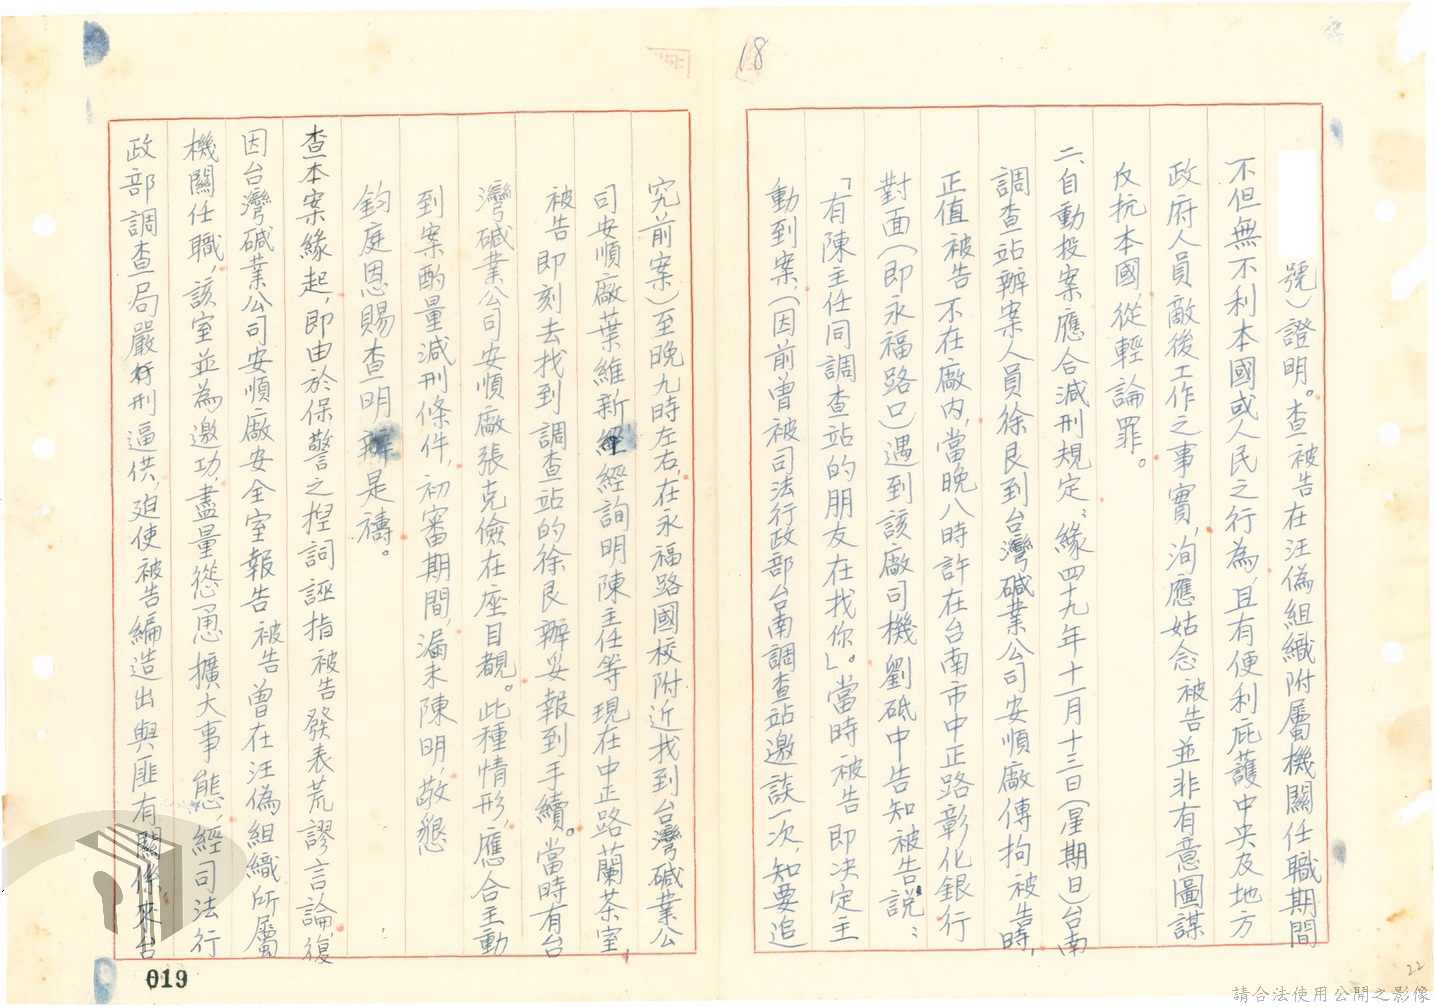 18
號）證明。查被告在汪偽組織附屬機關任職期間
不但無不利本國或人民之行為，且有便利庇護中央及地方
政府人員敵後工作之事實，洵應姑念被告並非有意圖謀
反抗本國，從輕論罪。
二、自動投案應合減刑規定：緣四十九年十一月十三日（星期日）台南
調查站辦案人員徐良到台灣碱業公司安順廠傳拘被告時，
正值被告不在廠內，當晚八時許在台南市中正路彰化銀行
對面（即永福路口）遇到該廠司機劉砥中告知被告說：
「有陳主任同調查站的朋友在找你」。當時被告即決定主
動到案，（因前曾被司法行政部台南調查站邀談一次，知要追
究前案）至晚九時左右，在永福路國校附近找到台灣碱業公
司安順廠葉維新經經詢明陳主任等現在中正路蘭茶室，
被告即刻去找到調查站的徐良辦妥報到手續。當時有台
灣碱業公司安順廠張克儉在座目覩。此種情形，應合主動
到案酌量減刑條件，初審期間，漏未陳明，敬懇
鈞庭恩賜查明辦是禱。
查本案緣起，即由於保警之揑詞誣指被告發表荒謬言論，復
因台灣碱業公司安順廠安全室報告被告曾在汪偽組織所屬
機關任職，該室並為邀功，盡量慫恿擴大事態，經司法行
政部調查局嚴刑逼供，廹使被告編造出與匪有關係來台
019
22
請合法使用公開之影像